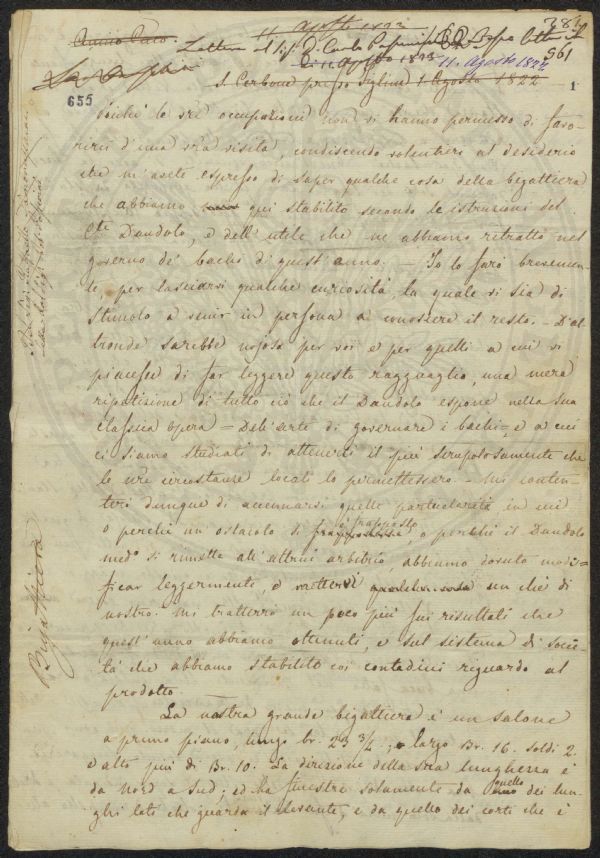 11. Agosto 1823
Amico Caro.
Lettera al Sig. D. Carlo
di 11. Agosto 1823 11. Agosto 1822
561
S. Cerbone presso Figline 1 Agosto 1822
655
1
Poichè le vre occupazioni non vi hanno permesso di favo-
rirci d'una vra visita, condiscendo volentieri al desiderio
che m'avete espresso di saper qualche cosa della bigattiera
che abbiamo qui stabilito secondo le istruzioni del
Cte Dandolo, e dell'utile che ne abbiamo retratto nel
governo de' bachi di quest'anno. — Io lo farò brevemen-
te, per lasciarvi qualche curiosità, la quale vi sia di
stimolo a venir in persona a conoscere il resto. — D'al
tronde sarebbe nojosa per voi e per quelli a cui vi
piacesse di far leggere questo ragguaglio, una mera
ripetizione di tutto ciò che il Dandolo espone nella sua
classica opera = Dell'arte di governare i bachi = e a cui
ci siamo studiati di attenerci il più scrupolosamente che
le nre circostanze locali lo permettessero — Mi conten-
terò dunque di accennarvi quelle particolarità in cui
o perchè un ostacolo vi si frapposto o perchè il Dandolo
medo si rimette all'altrui arbitrio, abbiamo dovuto modi=
ficar leggermente, e mettervi qualche cosa un chè di
nostro. Mi tratterrò un poco più sui risultati che
quest'anno abbiamo ottenuti, e sul sistema di socie-
tà che abbiamo stabilito coi contadini riguardo al
prodotto.
La nostra grande bigattiera è un salone
a primo piano, lungo br. 23 3/4, e largo Br. 16. soldi 2.
e alto più di Br. 10. La direzione della sua lunghezza è
da Nord a Sud; ed ha finestre solamente da quello dei lun-
ghi lati che guarda il Levante, e da quello dei corti che è
Bigattiera